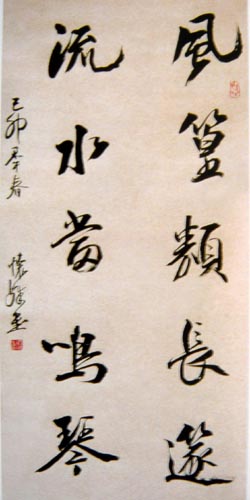 風篁類長篴
流水當鳴琴
己卯季春